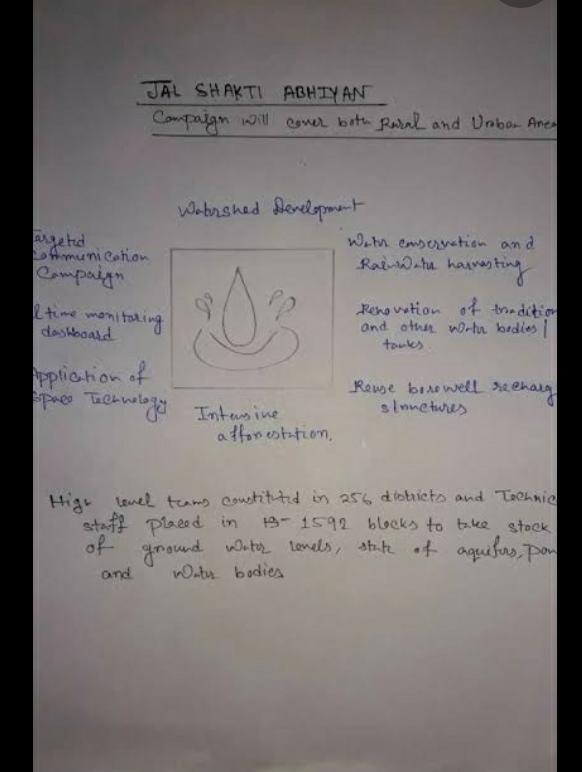 JAL SHAKTI ABHIYAN
Campaign will cover both Rural and Urban Area
Watershed Development
Targeted
Communication
Campaign
l time monitoring
dashboard
Application of
Space Technology
Water conservation and
Rain Water harvesting
Renovation of tradition
and other water bodies/
tanks
Reuse borewell recharg
structures
Intensive
afforestation.
High level teams constituted in 256 districts and Technic
staff placed in 1592 blocks to take stock
of ground water levels, state of aquifers, pon
and water bodies